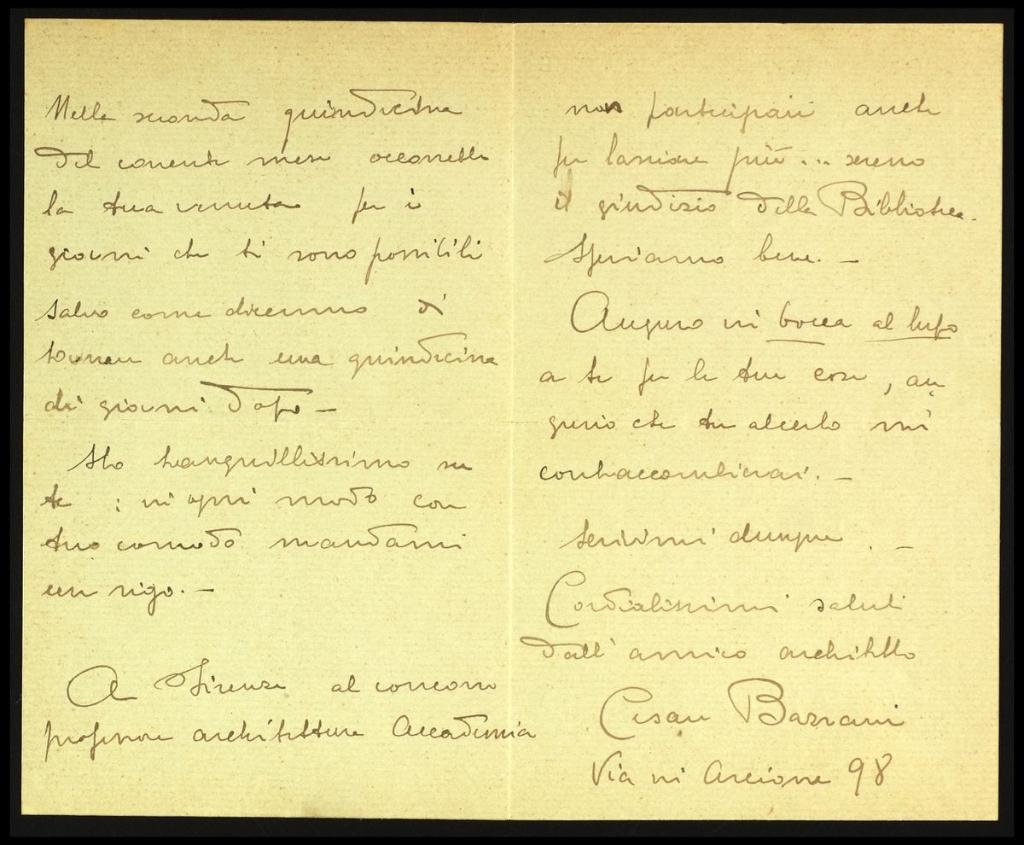 Nella seconda quindicina
del corrente mese occorrebbe
la tua venuta per i
giorni che ti sono possibili
salvo come diremmo di
tornare anche una quindicina
di giorni dopo –
Sto tranquillissimo su
te : in ogni modo con
tuo comodo mandami
un rigo. –
A Firenze al concorso
professore architettura Accademia
non partecipai anche
per lasciare più ... sereno
il giudizio della Biblioteca.
Speriamo bene. –
Auguro in bocca al lupo
a te per le tue cose, au
gurio che tu al certo mi
contraccambierai. –
Scrivimi dunque . –
Cordialissimi saluti
dall'amico architetto
Cesare Bazzani
Via in Arcione 98